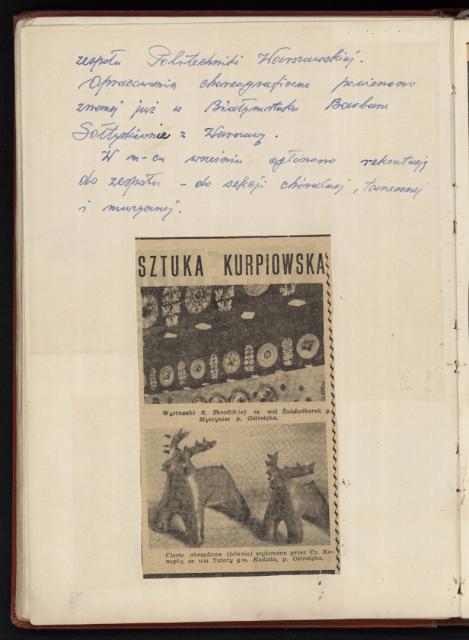 zespołu Politechniki Warszawskiej.
Opracowania choreograficzne powierzono
znanej już w Białymstoku Barbarze
Sołtysównie z Warszawy.
W m-cu wrześniu ogłoszono rekrutację
do zespołu - do sekcji chóralnej, tanecznej
i muzycznej.
SZTUKA KURPIOWSKA
Wycinanki R. Skrodzkiej ze wsi Świdwiborek p.
Myszyniec p. Ostrołęka.
Ciasto obrzędowe (jelenie) wykonane przez Cz. Ko-
napkę ze wsi Tatary gm. Kadzidło, p. Ostrołęka.